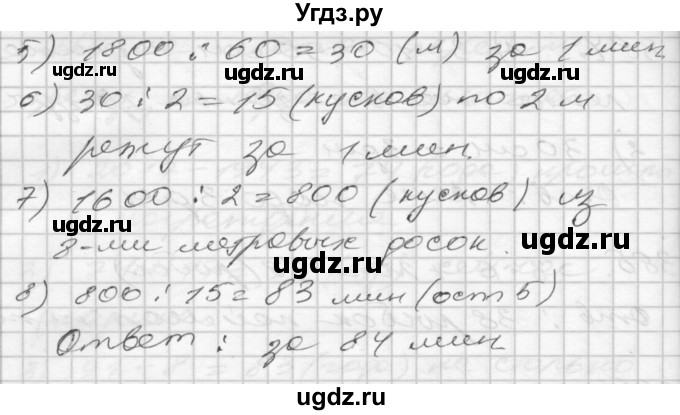 Угдз.ру
5) 1800 : 60 = 30 (м) за 1 мин
6) 30 : 2 = 15 (кусков) по 2 м
режут за 1 мин.
7) 1600 : 2 = 800 (кусков) из
8-ми метровых досок.
8) 800 : 15 = 83 мин (ост 5)
Ответ : за 84 мин
ugdz.ru
ugdz.ru
ugdz.ru
ugdz.ru
ugdz.ru
ugdz.ru
ugdz.ru
ugdz.ru
ugdz.ru
ugdz.ru
ugdz.ru